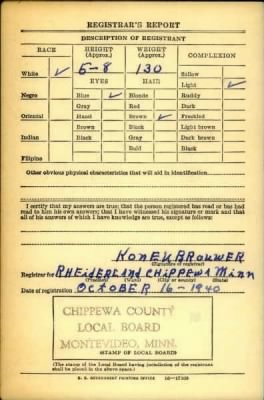 REGISTRAR'S REPORT
DESCRIPTION OF REGISTRANT
RACE HEIGHT (Approx.) WEIGHT (Approx.) COMPLEXION
White ✓ 5-8 130 Sallow
Light ✓
EYES HAIR
Negro Blue ✓ Blonde Ruddy
Gray Red Dark
Oriental Hazel Brown ✓ Freckled
Brown Black Light brown
Indian Black Gray Dark brown
Bald Black
Filipino
Other obvious physical characteristics that will aid in identification
I certify that my answers are true; that the person registered has read or has had read to him his own answers; that I have witnessed his signature or mark and that all of his answers of which I have knowledge are true, except as follows:
KONEK BROUWER
(Signature of registrar)
Registrar for RHEIDERLAND CHIPPEWA MINN
(Precinct) (City or county) (State)
Date of registration OCTOBER 16-1940
CHIPPEWA COUNTY
LOCAL BOARD
MONTEVIDEO, MINN.
(STAMP OF LOCAL BOARD)
(The stamp of the Local Board having jurisdiction of the registrant
shall be placed in the above space.)
U. S. GOVERNMENT PRINTING OFFICE